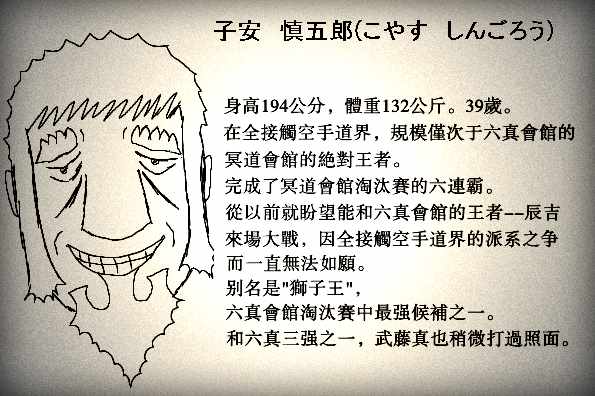 子安　慎五郎(こやす　しんごろう)
身高194公分，體重132公斤。39歲。
在全接觸空手道界，規模僅次于六真會館的
冥道會館的絶對王者。
完成了冥道會館淘汰賽的六連霸。
從以前就盼望能和六真會館的王者--辰吉
來場大戰，因全接觸空手道界的派系之争
而一直無法如願。
别名是"獅子王"，
六真會館淘汰賽中最强候補之一。
和六真三强之一，武藤真也稍微打過照面。